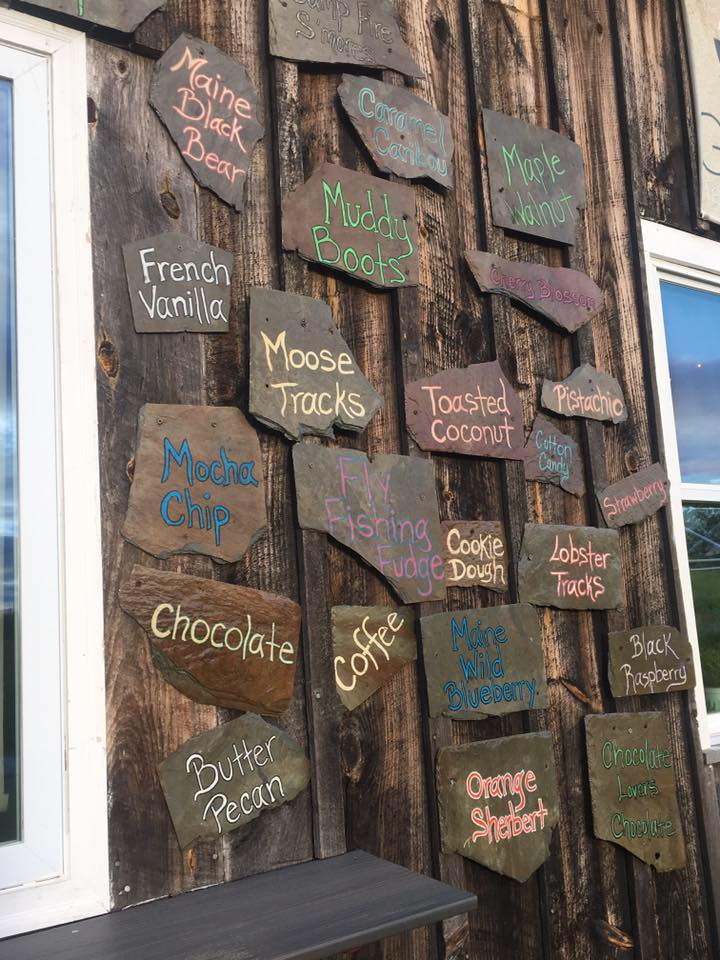 Camp Fire
S'mores
Maine
Black
Bear
Caramel
Caribou
Maple
Walnut
Muddy
Boots
French
Vanilla
Cherry Blossom
Moose
Tracks
Toasted
Coconut
Pistachio
Cotton
Candy
Mocha
Chip
Fly
Fishing
Fudge
Strawberry
Cookie
Dough
Lobster
Tracks
Chocolate
Coffee
Maine
Wild
Blueberry
Black
Raspberry
Butter
Pecan
Orange
Sherbert
Chocolate
Lovers
Chocolate